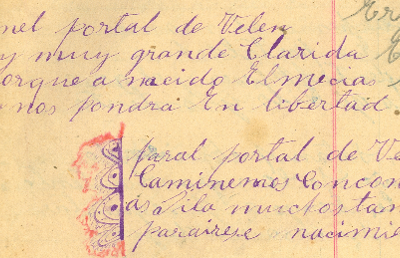 nel portal de Velen
y muy grande Clarida
orque a nacido El mecias
nos pondra En libertad
paral portal de Ve
Caminemos Con con
as a ila muchos tan
para irese nacimie